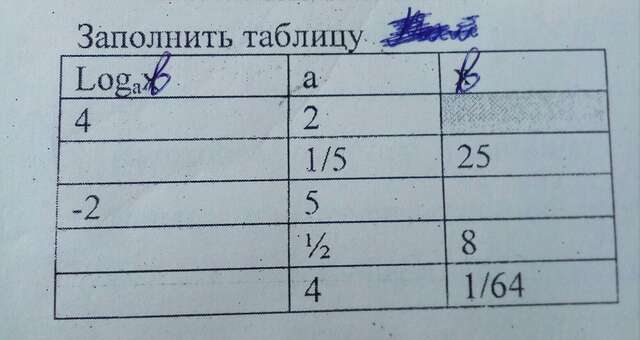 Заполнить таблицу
Logₐ в a в
4 2
1/5 25
-2 5
½ 8
4 1/64